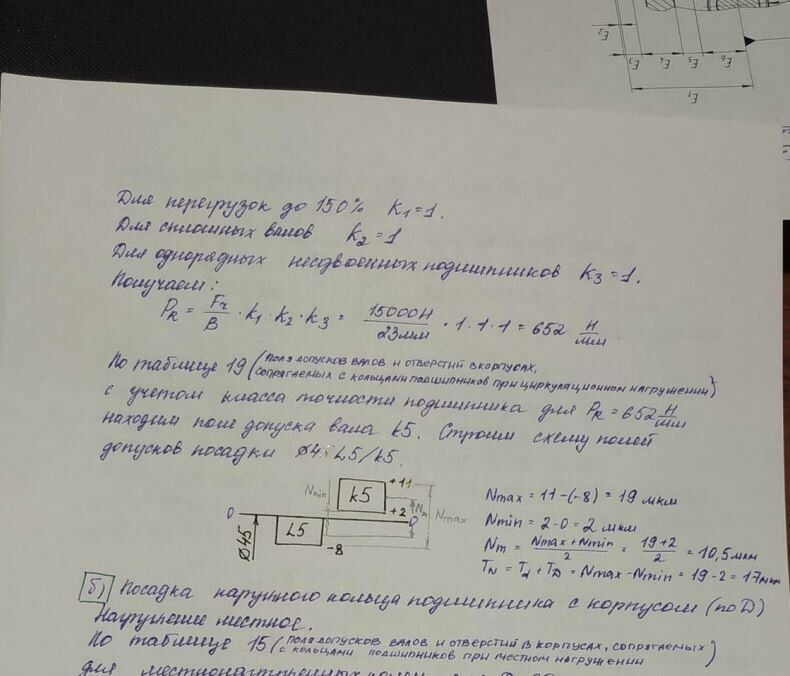 E₂
E₃
E₄
E₅
E₆
E₁
Для перегрузок до 150% K₁=1.
Для сплошных валов K₂=1
Для однорядных несдвоенных подшипников K₃=1.
Получаем:
P_R = F_r/B · K₁ · K₂ · K₃ = 15000Н/23мм · 1 · 1 · 1 = 652 Н/мм.
По таблице 19 (поля допусков валов и отверстий в корпусах,
сопрягаемых с кольцами подшипников при циркуляционном нагружении)
с учетом класса точности подшипника для P_R = 652 Н/мм
находим поле допуска вала k5. Строим схему полей
допусков посадки ø45 L5/k5.
+11
k5
Nmin
+2
Nm
Nmax
0
0
L5
-8
ø45
Nmax = 11-(-8) = 19 мкм
Nmin = 2-0 = 2 мкм
Nm = Nmax+Nmin/2 = 19+2/2 = 10,5 мкм
T_N = T_d + T_D = Nmax-Nmin = 19-2 = 17 мкм
б) Посадка наружного кольца подшипника с корпусом (по D)
Нагружение местное.
По таблице 15 (поля допусков валов и отверстий в корпусах, сопрягаемых
с кольцами подшипников при местном нагружении)
для